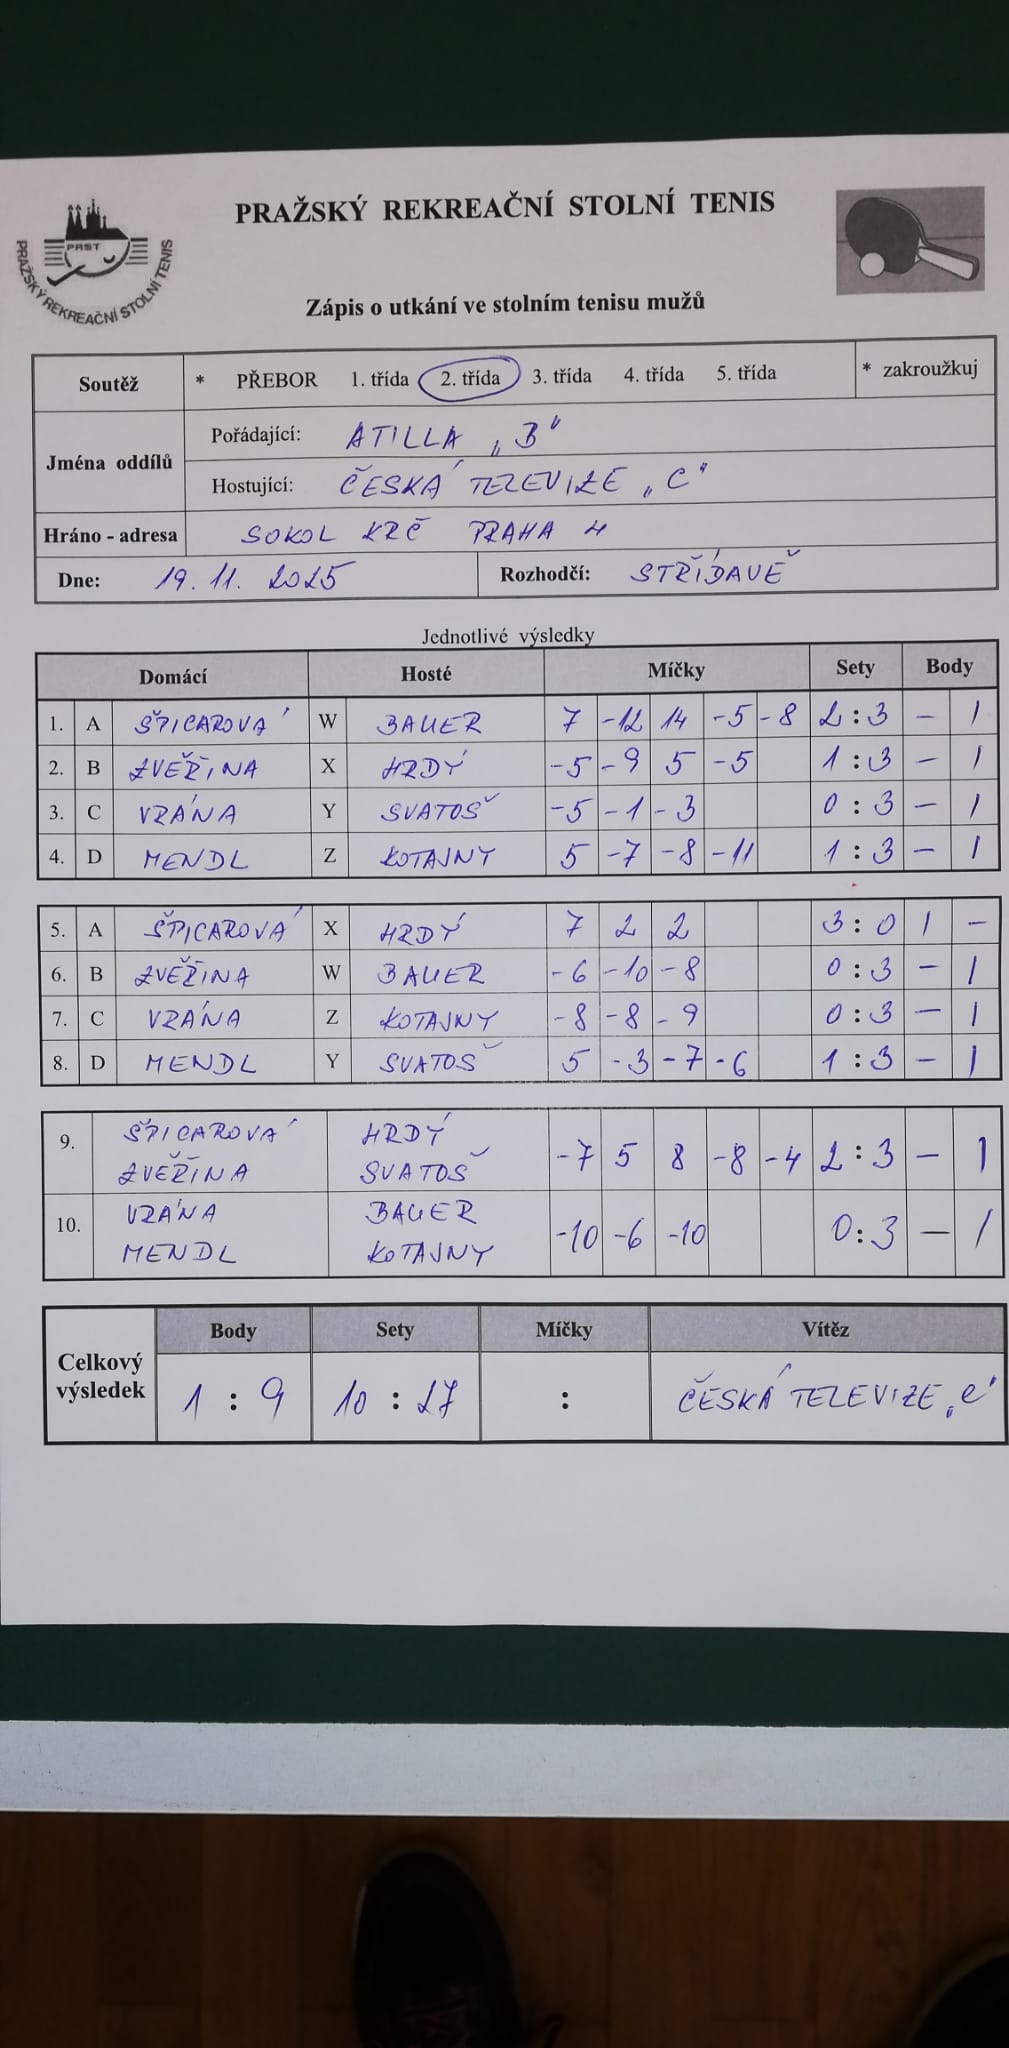 PRAŽSKÝ REKREAČNÍ STOLNÍ TENIS
PRST
PRAŽSKÝ REKREAČNÍ STOLNÍ TENIS
Zápis o utkání ve stolním tenisu mužů
Soutěž * PŘEBOR 1. třída 2. třída 3. třída 4. třída 5. třída * zakroužkuj
Jména oddílů
Pořádající: ATILLA „B"
Hostující: ČESKÁ TELEVIZE „C"
Hráno - adresa SOKOL KRČ PRAHA 4
Dne: 19. 11. 2025 Rozhodčí: STŘÍDAVĚ
Jednotlivé výsledky
Domácí Hosté Míčky Sety Body
1. A ŠPICAROVÁ W BAUER 7 -12 14 -5 -8 2:3 - 1
2. B ZVEŘINA X HRDÝ -5 -9 5 -5 1:3 - 1
3. C VRÁNA Y SVATOŠ -5 -1 -3 0:3 - 1
4. D MENDL Z KOTAJNY 5 -7 -8 -11 1:3 - 1
5. A ŠPICAROVÁ X HRDÝ 7 2 2 3:0 1 -
6. B ZVEŘINA W BAUER -6 -10 -8 0:3 - 1
7. C VRÁNA Z KOTAJNY -8 -8 -9 0:3 - 1
8. D MENDL Y SVATOŠ 5 -3 -7 -6 1:3 - 1
9. ŠPICAROVÁ HRDÝ -7 5 8 -8 -4 2:3 - 1
ZVEŘINA SVATOŠ
10. VRÁNA BAUER -10 -6 -10 0:3 - 1
MENDL KOTAJNY
Celkový výsledek
Body Sety Míčky Vítěz
1 : 9 10 : 27 : ČESKÁ TELEVIZE „C"